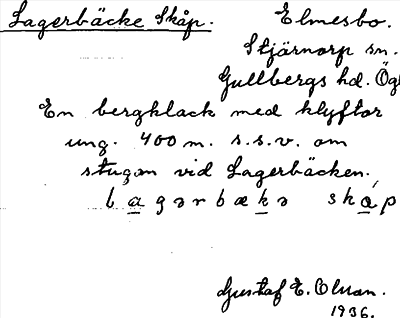 Lagerbäcke Skåp. Elmesbo.
Stjärnorp sn.
Gullbergs hd. Ög
En bergklack med klyftor
ung. 400 m. s.s.v. om
stugan vid Lagerbäcken.
lagərbækə skåp
Gustaf E. Olsson.
1936.